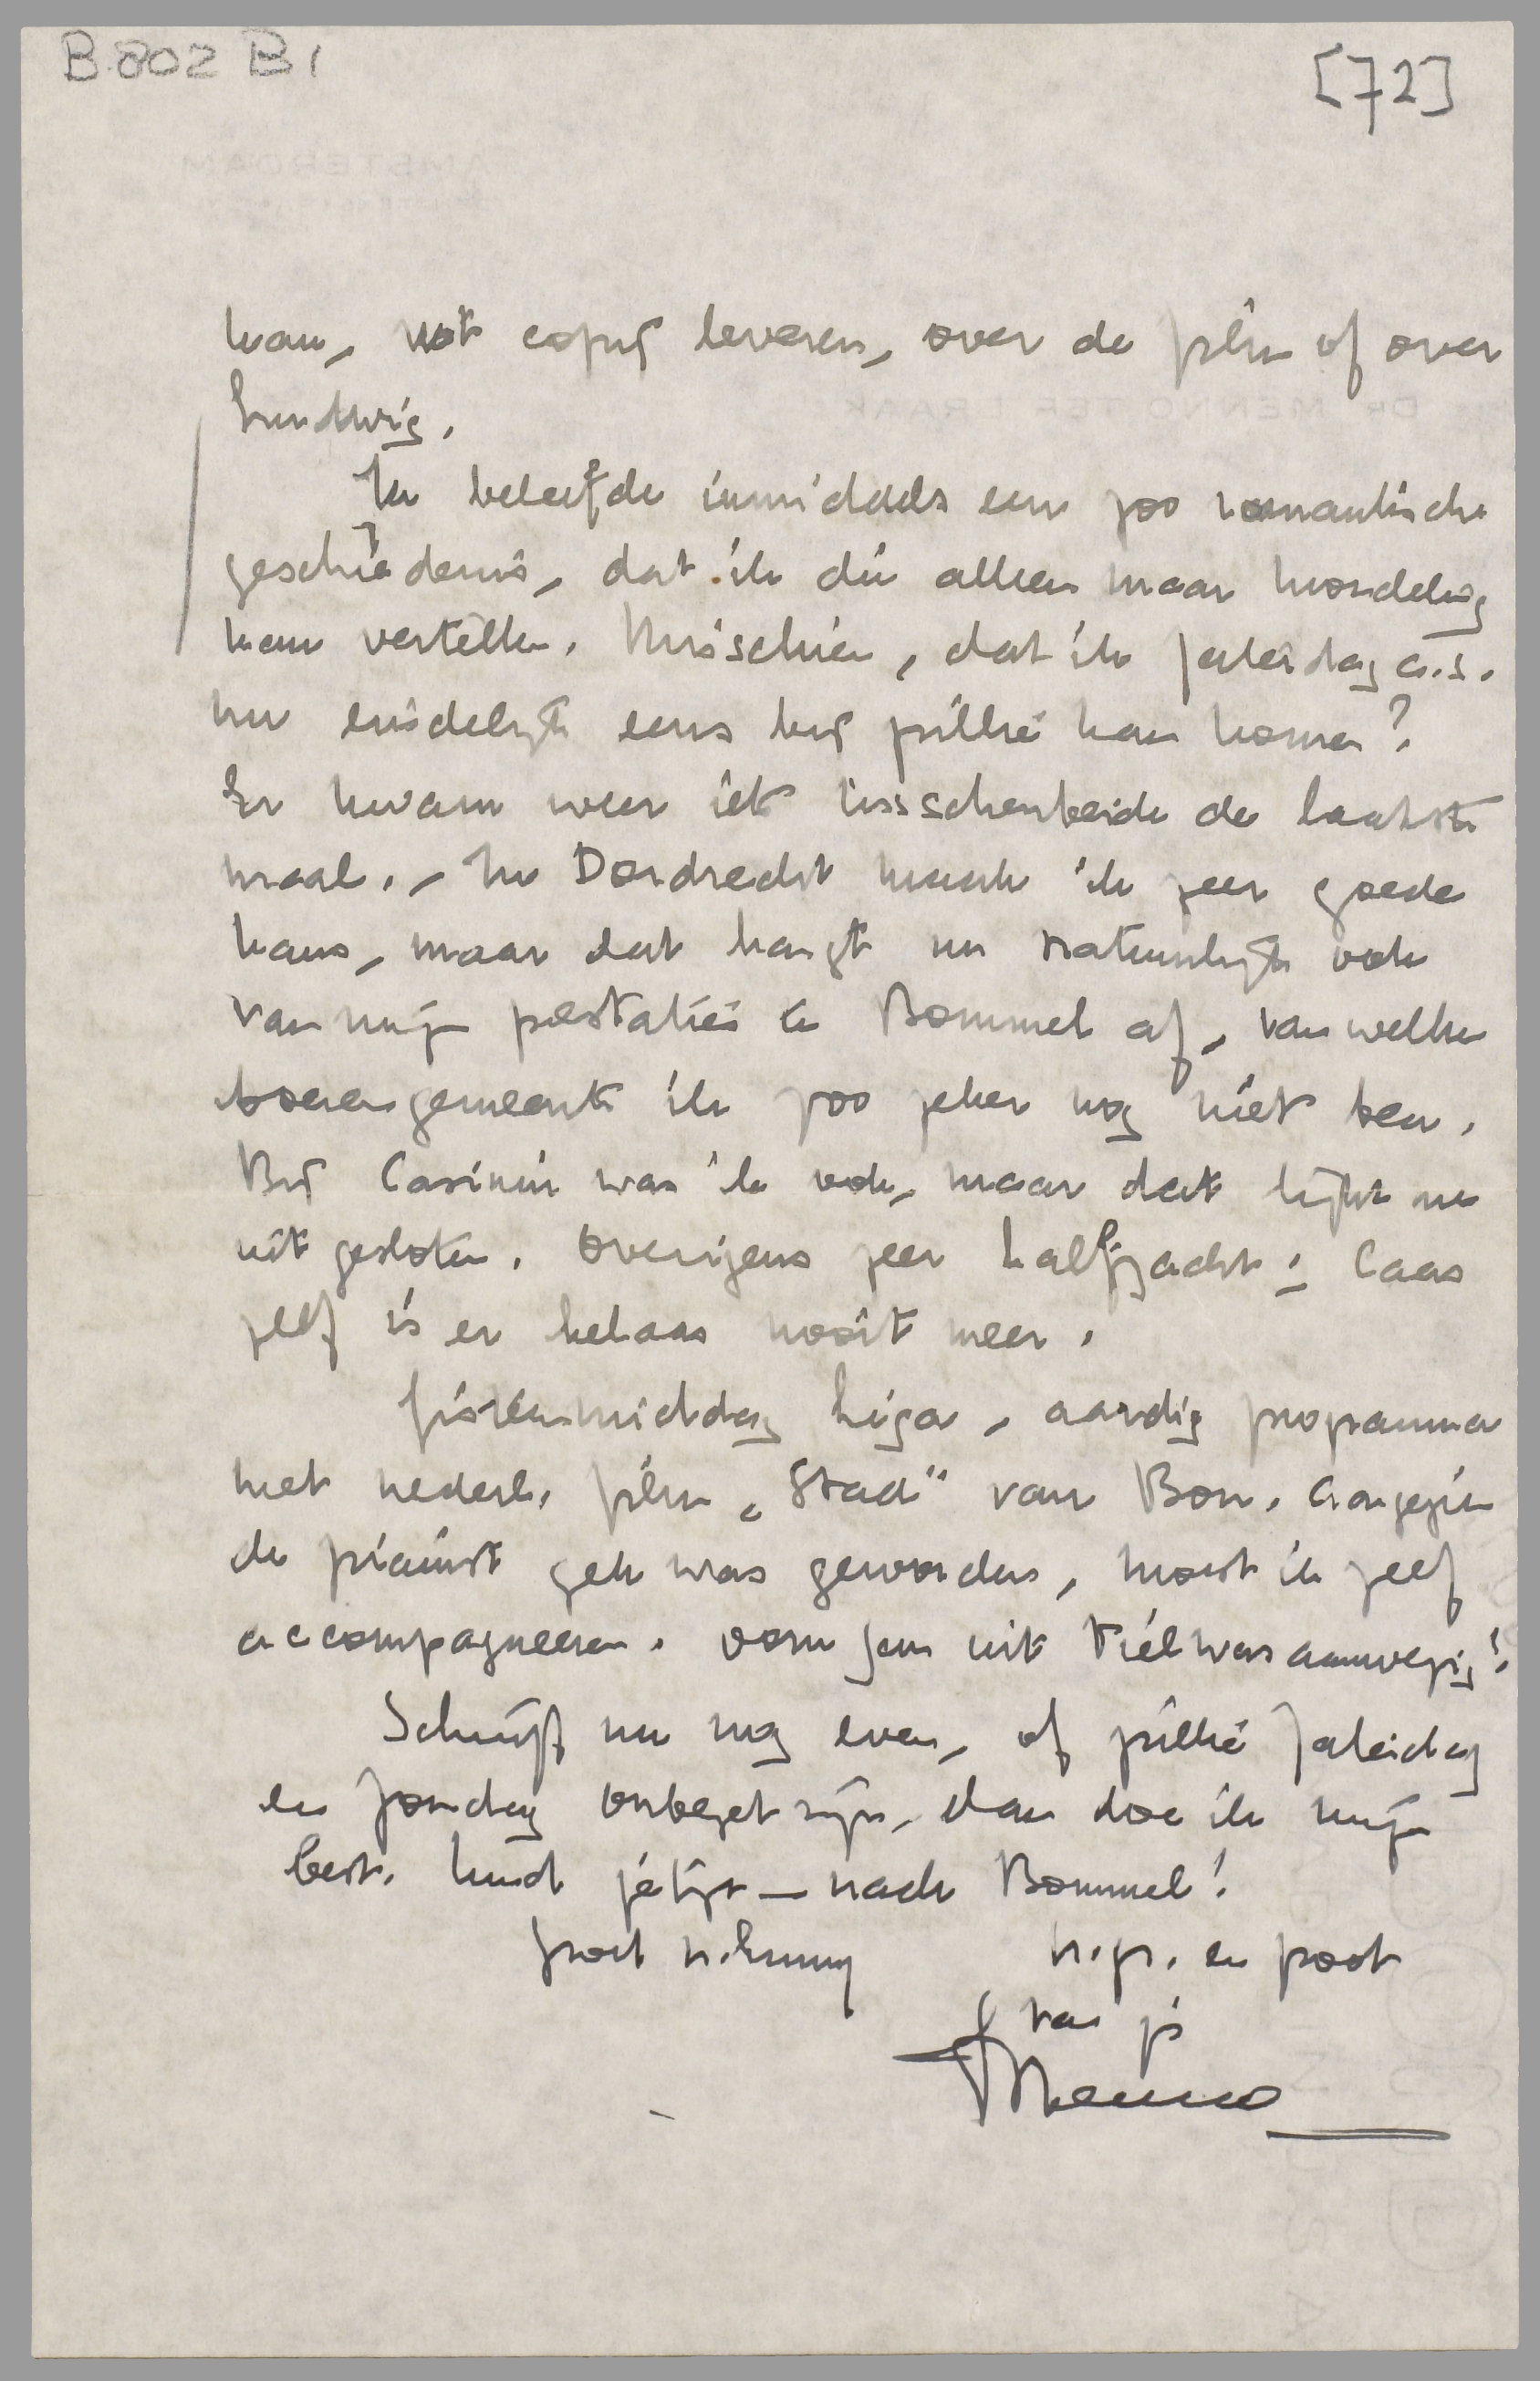 B.802 B1
[72]
kan, wat copij leveren, over de film of over
Ludwig.
Ik beleefde inmiddels een zoo romantische
geschiedenis, dat ik die alleen maar mondeling
kan vertellen. Misschien, dat ik Zaterdag a.s.
nu eindelijk eens bij jullie kan komen?
Er kwam weer iets tusschenbeide de laatste
maal. – In Dordrecht maak ik zeer goede
kans, maar dat hangt nu natuurlijk ook
van mijn prestaties in Bommel af, van welke
boerengemeente ik zoo zeker nog niet ben.
Bij Casimir was ik ook, maar dat lijkt me
uitgesloten. Overigens zeer halfzacht; Caas
zelf is er helaas nooit meer.
Gisterenmiddag Liga, aardig programma
met nederl. film „Stad" van Bon. Aangezien
de pianist gek was geworden, moest ik zelf
accompagneeren. Oom Jan uit Tiel was aanwezig!
Schrijf me nog even, of jullie Zaterdag
en Zondag onbezet zijn, dan doe ik mijn
best. Und jetzt – nach Bommel!
groet h.gr. en poot
van je
Menno